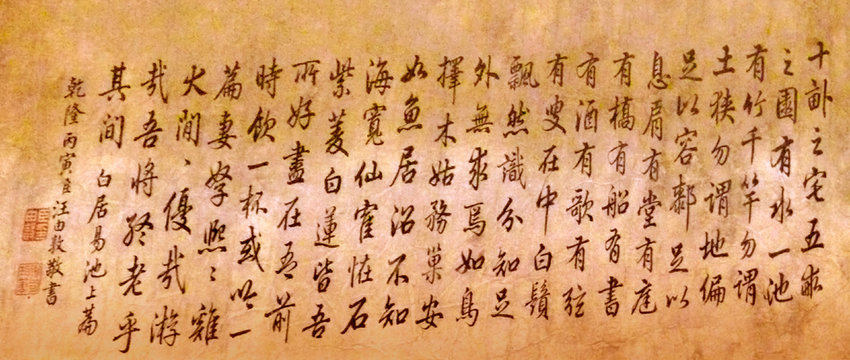 十畝之宅五畝
之園有水一池
有竹千竿勿謂
土狹勿謂地偏
足以容䣛足以
息肩有堂有庭
有橋有船有書
有酒有歌有弦
有叟在中白鬚
飄然識分知足
外無求焉如鳥
擇木姑務巢安
如魚居沼不知
海寬仙寉恠石
紫菱白蓮皆吾
所好盡在吾前
時飲一杯或吟一
篇妻孥熙〻雞
犬閒〻優哉游
哉吾將終老乎
其間 白居易池上篇
乾隆丙寅臣汪由敦敬書